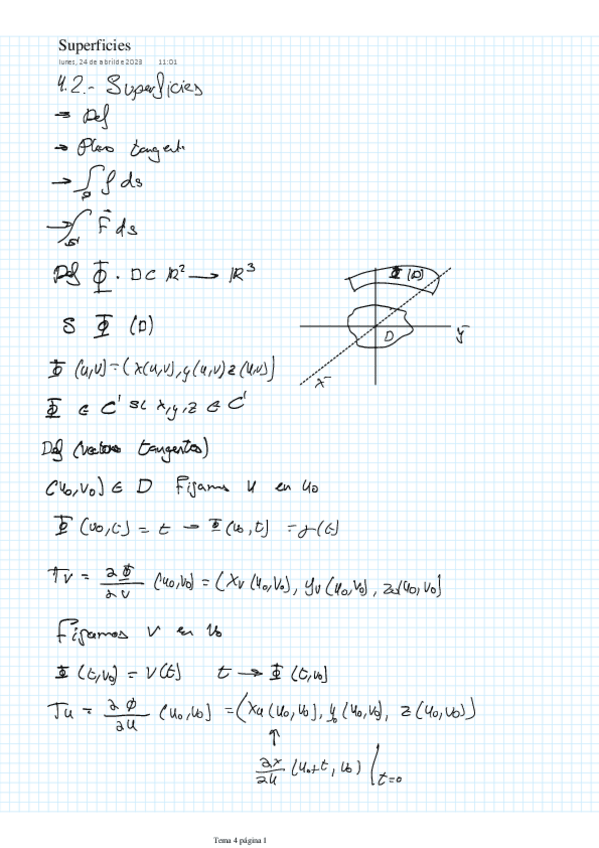 Superficies
lunes, 24 de abril de 2023 11:01
4.2.- Superficies
→ Def
→ Plano tangente
→ ∫ f ds
→ ∫_S F⃗ ds
Def Φ · D ⊂ ℝ² → ℝ³
Φ (D)
S Φ (D)
D
y
x
Φ (u,v) = (x(u,v), y(u,v) z(u,v))
Φ ∈ C' si x,y,z ∈ C'
Def (vectores tangentes)
(u₀,v₀) ∈ D Fijamos u en u₀
Φ (u₀,t) = t → Φ(u₀,t) = γ(t)
Tv = ∂Φ/∂v (u₀,v₀) = (xv (u₀,v₀), yv (u₀,v₀), zv(u₀,v₀)
Fijamos v en v₀
Φ (t,v₀) = v(t) t → Φ (t,v₀)
Tu = ∂φ/∂u (u₀,v₀) = (xu (u₀,v₀), y (u₀,v₀), z(u₀,v₀))
↑
∂x/∂u (u₀+t, v₀) |t=0
Tema 4 página 1